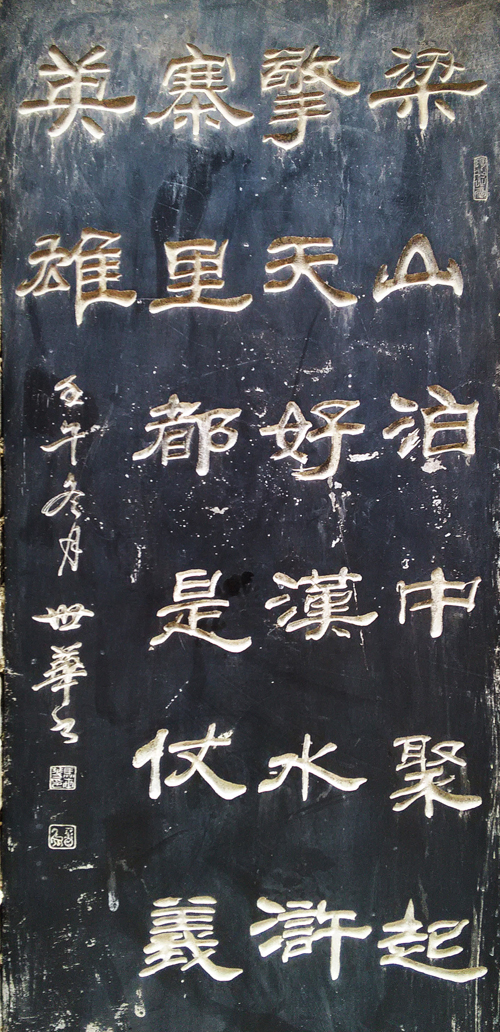 梁山泊中聚起
擎天好漢水滸
寨里都是仗義
英雄
壬午冬月世華书